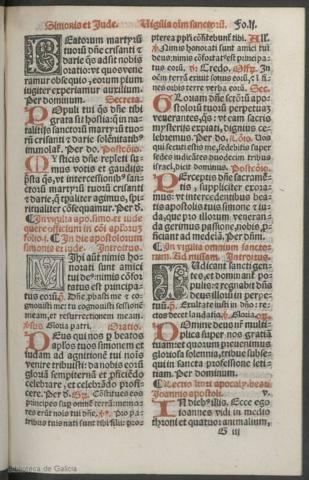 Simonis et Jude. Vigilia oīm sanctorū. Fo.lj.
BEatorum martyrū
tuorū dn̄e crisanti ⁊
darie q̄s adsit nobis
oratio: vt quos vene
ramur obsequio, eorum pijs
iugiter experiamur auxilijs.
Per dominum. Secreta.
POpuli tui q̄s dn̄e tibi
grata sit hostia: q̄ in na
talitijs sanctorū martyrū tuo
rū crisanti ⁊ darie solēnitatib⁹
immolat̄. Per do. Postcōio.
MYsticis dn̄e repleti su
mus votis et gaudijs
sanctorū martyrū tuorū crisanti
⁊ darie, q̄ tpaliter agimus, spi
ritualiter cōsequamur. Per d.
folio
In die apostolorum
simonis et iude. Introitus.
MIhi aūt nimis ho
norati sunt amici
tui de⁹: nimis cōfor
tatus est principa
tus eorū. Dn̄e pbasti me ⁊ co
gnouisti me: tu cognouisti sessionē
meam, et resurrectionem meam.
Gloria patri. Oratio.
DEus qui nos p beatos
aplos tuos simonem et
iudam ad agnitionē tui noīs
venire tribuisti: da nobis eorū
gloriā sempiternā et pficiēdo
celebrare, et celebrādo profi
cere. Per d. Cōstitues eos
principes sup omnē terrā: memo
res erūt noīs tui dn̄e. Pro pa
tribus tuis nati sunt tibi filij: pro
pterea ppli cōfitebunt tibi. All.
Nimis honorati sunt amici tui
deus: nimis cōfortat⁹ est principa
tus eorū. Credo. Offr. In
oēm terrā exiuit sonus eorū: ⁊ i
nes orbis terre verba eorū. Sec.
GLoriam dn̄e sctōrū apo
stolorū tuorū perpetuaz
venerantes, q̄s: vt eam sacris
mysterijs expiati, dignius ce
lebremus. Per do. Cōio. Vos
qui secuti estis me, sedebitis super
sedes iudicātes duodecim tribus
israel, dicit dominus. Postcōio.
PErceptis dn̄e sacramē
tis, suppliciter exora
mus: vt intercedentibus bea
tis apostolis tuis simone ⁊ iu
da, que pro illorum veneran
da gerimus passione, nobis p
ficiant ad medelā. Per dn̄m.
In vigilia omnium sanctos
rum. Ad missam. Introitus.
IUdicant sancti gen
tes, et dominant̄ po
pulis: ⁊ regnabit dn̄s
deus illorū in perpe
tuū. Exultate iusti in dn̄o: re
ctos decet laudatio. Gloria.
DOmine deus n̄r multi
plica super nos gratiā
tuam: et quorum preuenimus
gloriosa solennia, tribue subse
qui in sancta professione leti
tiam. Per dominum.
Lectio libri apocalyp. beati
Joannis apostoli. v.
IN dieb⁹ illis. Ecce ego
ioannes vidi in medio
throni et quatuor animalium,
G iij
Biblioteca de Galicia